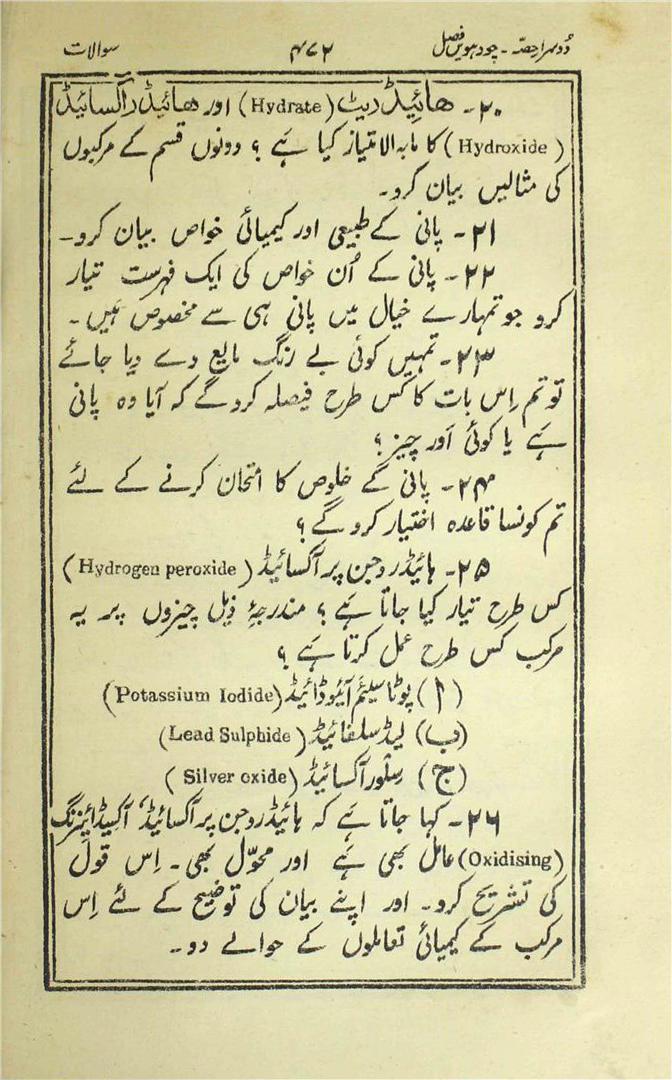 دُوسرا حِصّہ - چودہویں فصل ۴۷۲ سوالات
۲۰- ھائیڈریٹ (Hydrate) اور ھائیڈرآکسائیڈ
(Hydroxide) کا مابہ الامتیاز کیا ہَے ؟ دونوں قسم کے مرکبوں
کی مثالیں بیان کرو-
۲۱- پانی کے طبیعی اور کیمیائی خواص بیان کرو-
۲۲- پانی کے اُن خواص کی ایک فہرست تیار
کرو جو تمہارے خیال میں پانی ہی سے مخصوص ہَیں-
۲۳- تمہیں کوئی بے رنگ مایع دے دیا جائے
تو تم اِس بات کا کس طرح فیصلہ کرو گے کہ آیا وہ پانی
ہَے یا کوئی اَور چیز ؟
۲۴- پانی کے خلوص کا امتحان کرنے کے لئے
تم کونسا قاعدہ اختیار کرو گے ؟
۲۵- ہائیڈروجن پر آکسائیڈ (Hydrogen peroxide)
کس طرح تیار کیا جاتا ہَے ؟ مندرجۂ ذیل چیزوں پر یہ
مرکب کس طرح عمل کرتا ہَے ؟
(ا) پوٹاسیئم آیئوڈائیڈ (Potassium Iodide)
(ب) لیڈسلفائیڈ (Lead Sulphide)
(ج) سِلور آکسائیڈ (Silver oxide)
۲۶- کہا جاتا ہَے کہ ہائیڈروجن پر آکسائیڈ، آکسیڈائیزنگ
(Oxidising) عامل بھی ہَے اور محوّل بھی- اِس قول
کی تشریح کرو- اور اپنے بیان کی توضیح کے لئے اِس
مرکب کے کیمیائی تعاملوں کے حوالے دو-